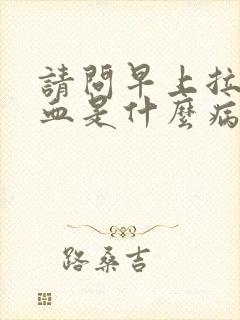 請問早上拉
血是什麼病
路桑吉